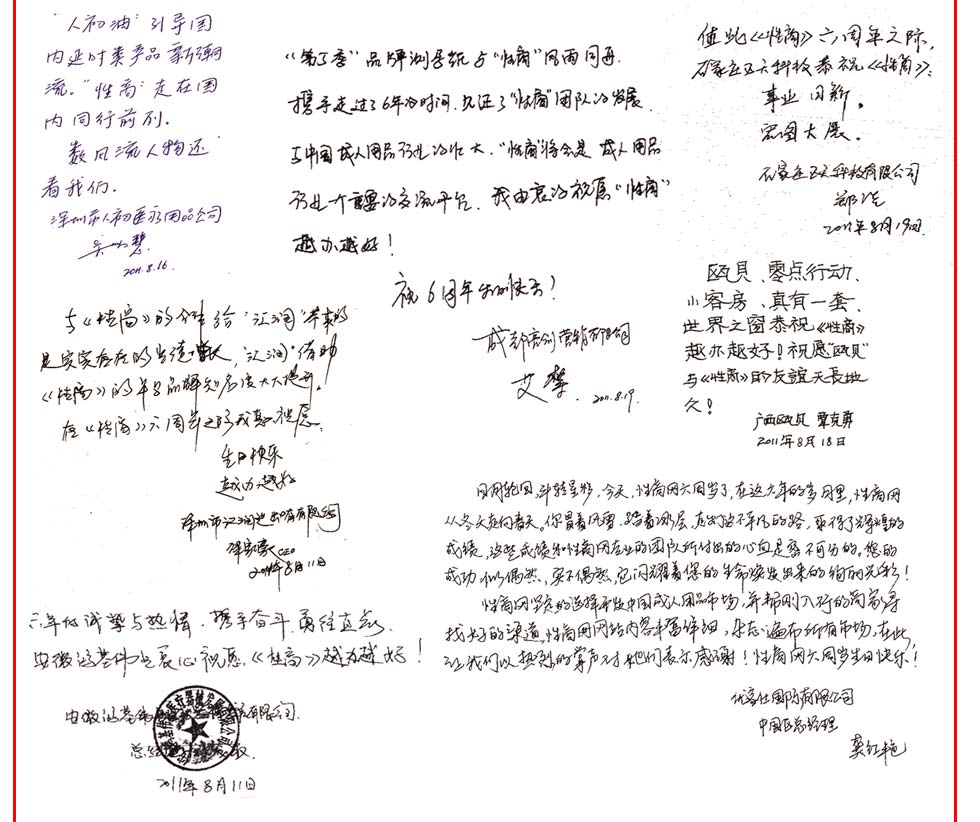 "人初油"引导国
内延时类产品新潮
流。"性商"走在国
内同行前列。
数风流人物还
看我们。
深圳市人初医疗用品公司
2011.8.16.
《第子季》品牌测导纸与"性商"风雨同舟.
携手走过了6年的时间.见证了"性商"团队的发展.
与中国成人用品行业的壮大."性商"将会是成人用品
行业一个重要的交流平台.我由衷的祝愿"性商"
越办越好!
祝6周年生日快乐!
成都亮剑营销有限公司
艾
2011.8.19.
值此《性商》六周年之际,
石家庄五天科技恭祝《性商》:
事业日新。
宏图大展。
石家庄五天科技有限公司
郑
2011年8月19日
瓯贝、零点行动、
小客房、真有一套、
世界之窗恭祝《性商》
越办越好!祝愿"瓯贝"
与《性商》的友谊天長地
久!
广西瓯贝 覃克勇
2011年8月18日
与《性商》的合作给"江润"带来的
是实实在在的业绩增长,"江润"借助
《性商》的平台品牌知名度大大提升。
在《性商》六周年之际我真心祝愿:
生日快乐
越办越好
深圳市江润进出口有限公司
CEO
2011年8月11日
六年的诚挚与热情、携手奋斗、勇往直前、
安徽鸿基伟业衷心祝愿《性商》越办越好!
安徽鸿基伟业有限公司
总经理
2011年8月11日
日月轮回,斗转星移,今天,性商网六周岁了,在这六年的岁月里,性商网
从冬天走向春天。你冒着风雪,踏着冰层,走出了这不平凡的路,取得了辉煌的
成绩,这些成绩和性商网专业的团队所付出的心血是密不可分的,您的
成功似偶然,实不偶然,它闪耀着您的生命焕发出来的绚丽光彩!
性商网坚定的选择开发中国成人用品市场,并帮刚入行的商家寻
找好的渠道,性商网网站内容丰富详细,杂志遍布所有市场,在此,
让我们以热烈的掌声对她们表示感谢!性商网六周岁生日快乐!
优客仕国际有限公司
中国区总经理
龚红艳